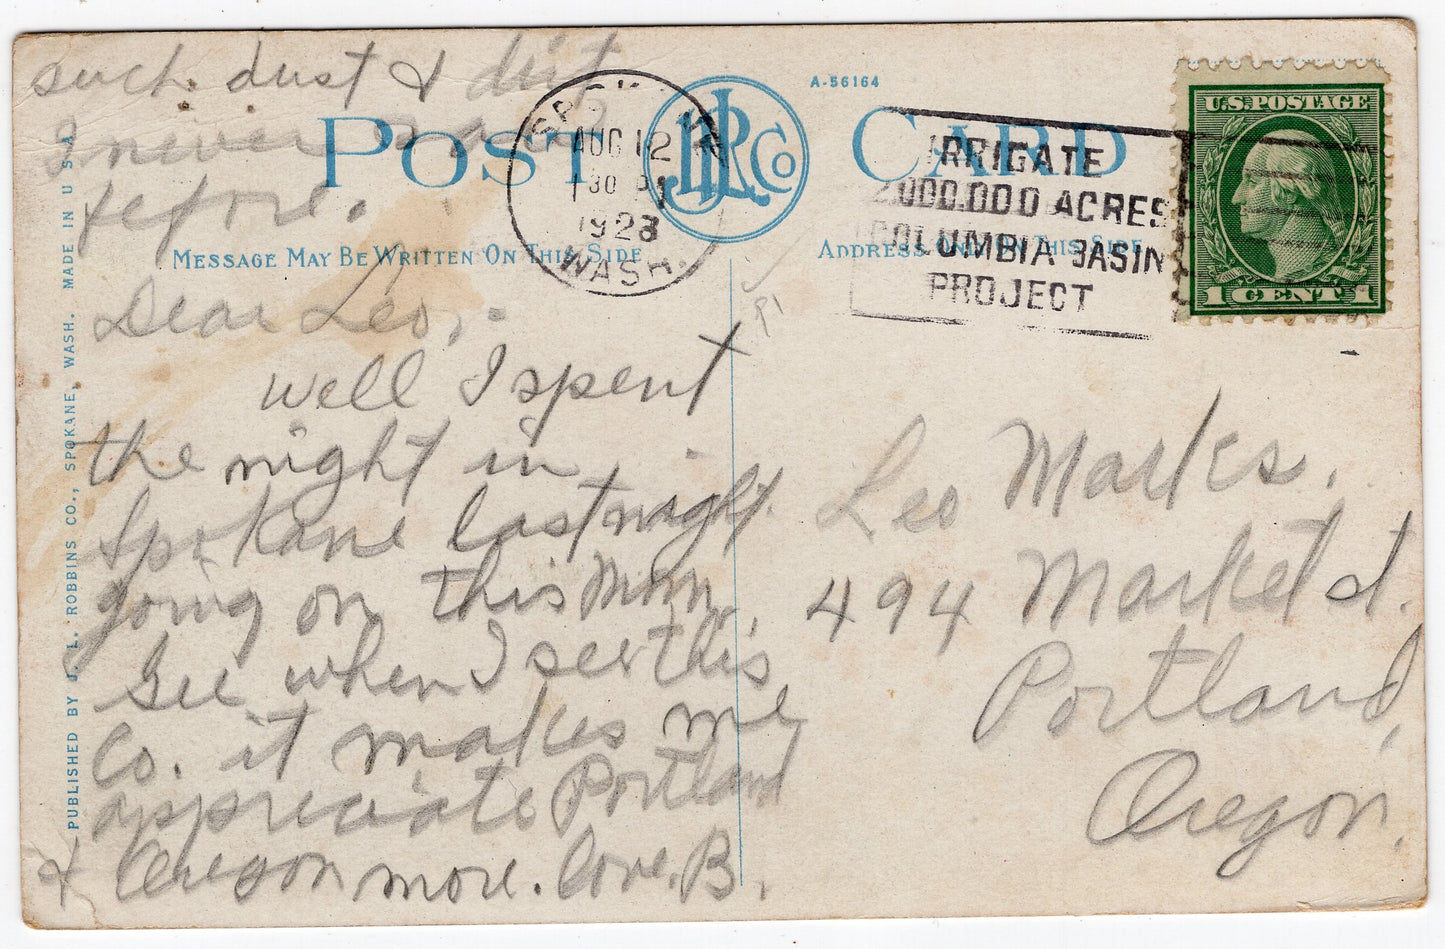 such dust & dirt
I never saw
before.
POST CARD
JLR Co
A-56164
SPOKANE
AUG 12
1 30 P
1923
WASH.
IRRIGATE
2,000,000 ACRES
COLUMBIA BASIN
PROJECT
U.S. POSTAGE
1 CENT 1
MESSAGE MAY BE WRITTEN ON THIS SIDE
ADDRESS ONLY ON THIS SIDE
PUBLISHED BY J. L. ROBBINS CO., SPOKANE, WASH. MADE IN U S A
Dear Leo,
well I spent
the night in
Spokane last night
going on this Morn.
Gee when I see this
Co. it makes me
appreciate Portland
& Oregon more. Love. B.
Leo Marks.
494 Market st.
Portland,
Oregon.